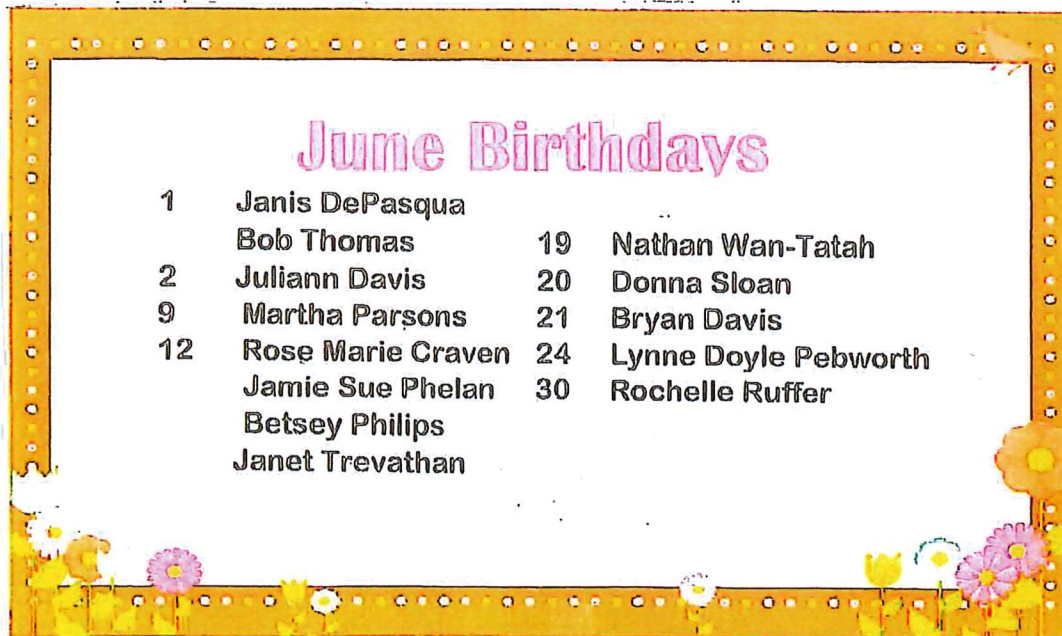 June Birthdays
1 Janis DePasqua
Bob Thomas
2 Juliann Davis
9 Martha Parsons
12 Rose Marie Craven
Jamie Sue Phelan
Betsey Philips
Janet Trevathan
19 Nathan Wan-Tatah
20 Donna Sloan
21 Bryan Davis
24 Lynne Doyle Pebworth
30 Rochelle Ruffer